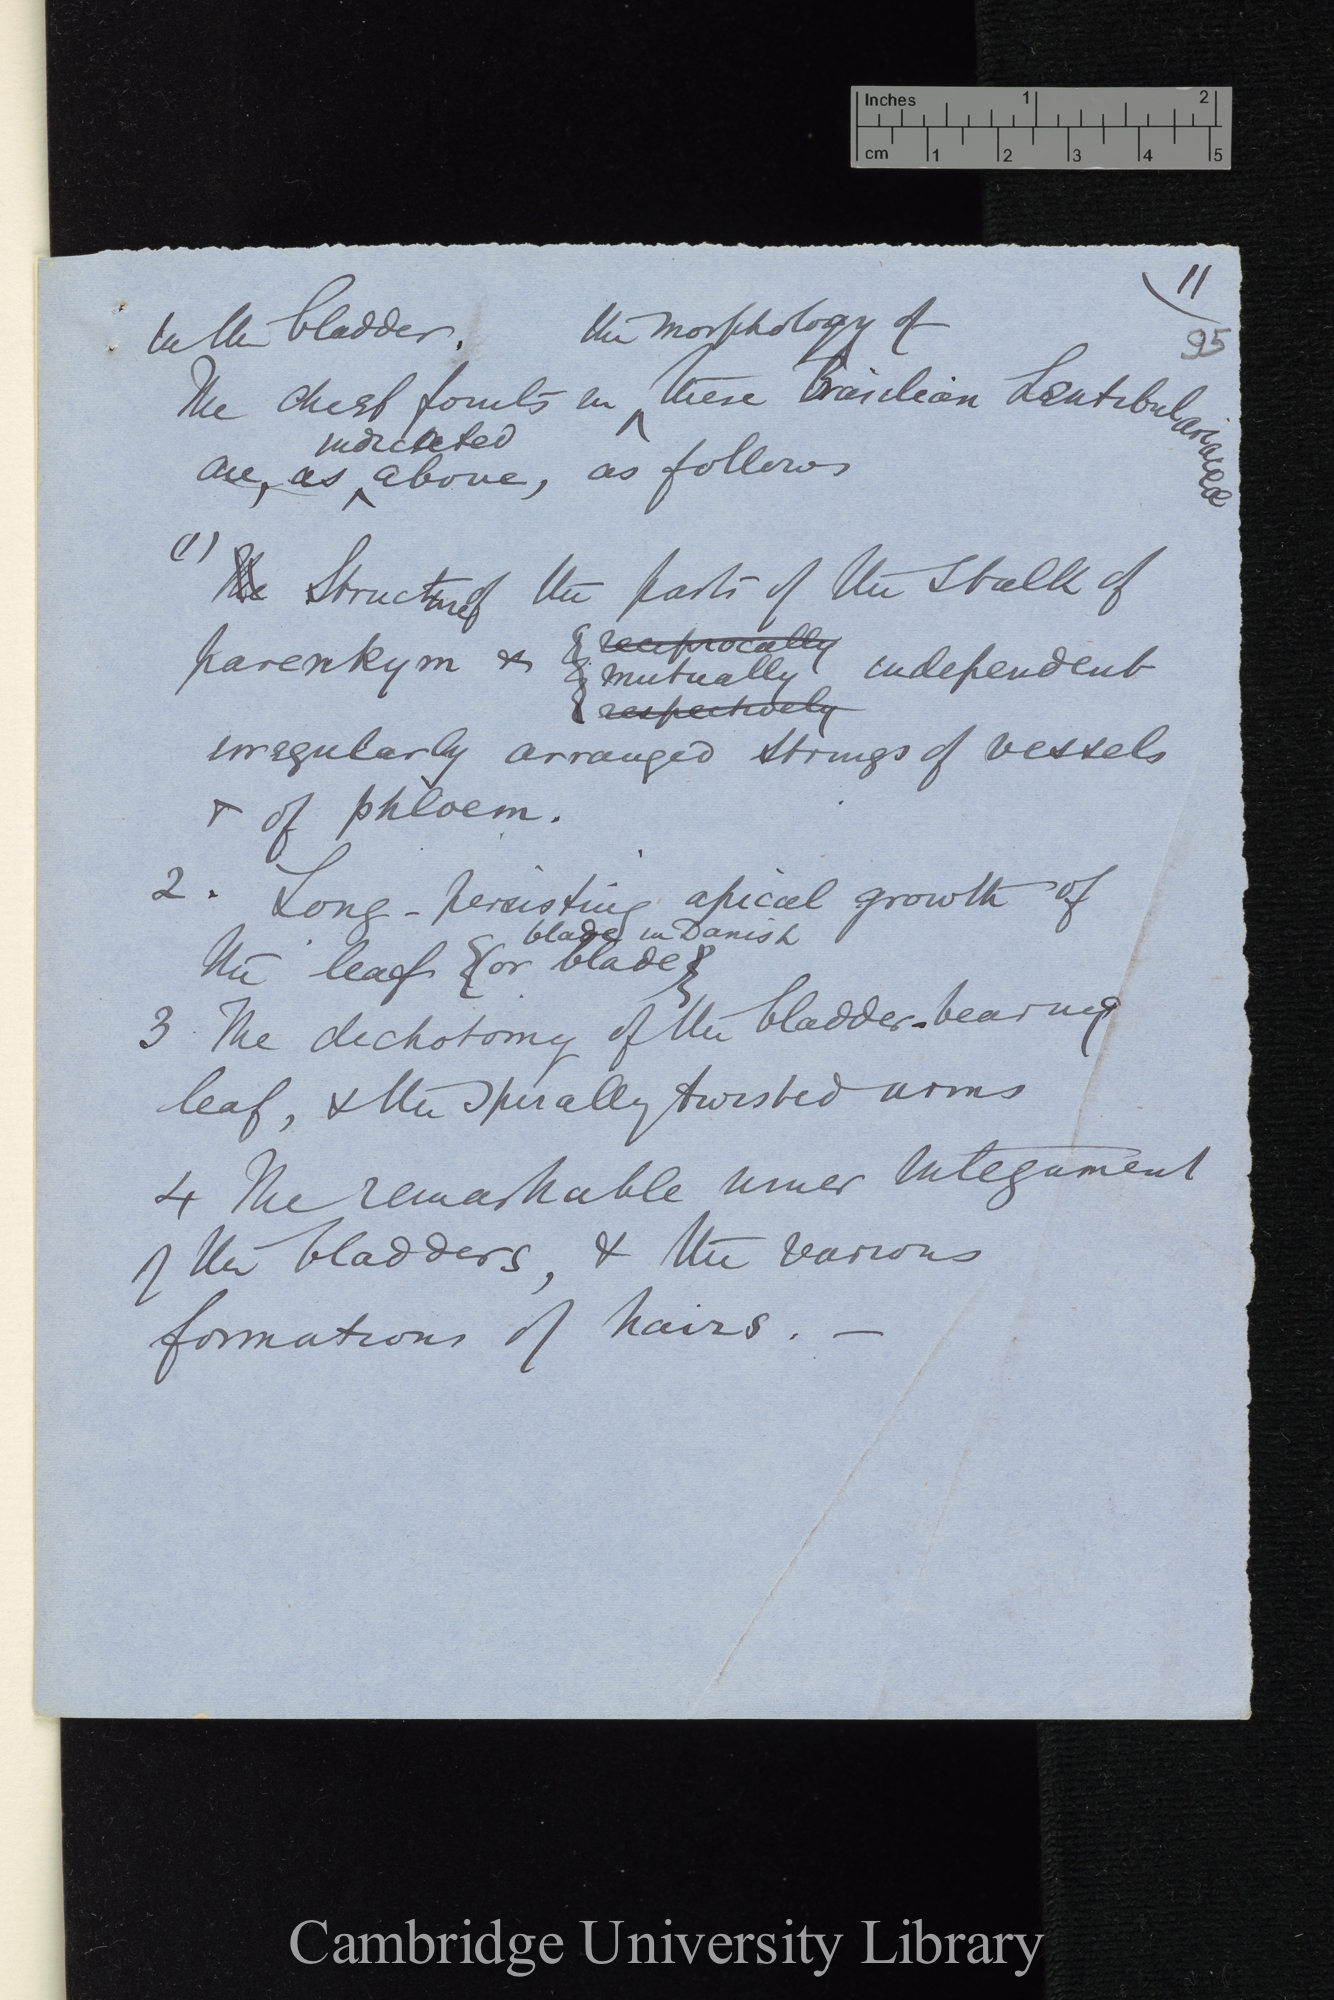 Inches 1 2
cm 1 2 3 4 5
11
95
in the bladder.
the morphology of
The chief points in ^ these Brasilian Lentibulariaceæ
indicated
are, as ^ above, as follows
(1) The Structure of the parts of the stalk of
reciprocally
parenkym & { mutually independent
respectively
irregularly arranged strings of vessels
& of phloem.
2. Long-persisting apical growth of
blade in Danish
the leaf {or blade}
3 The dichotomy of the bladder-bearing
leaf, & the spirally twisted arms
4 The remarkable inner integument
of the bladders, & the various
formations of hairs. —
Cambridge University Library